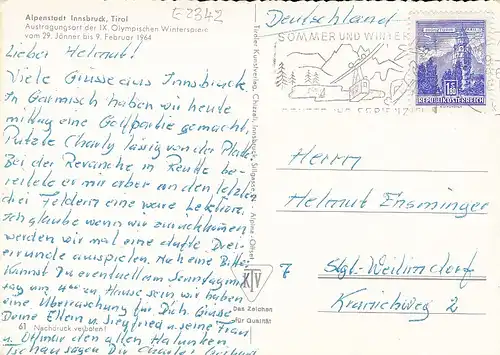 Alpenstadt Innsbruck, Tirol
Austragungsort der IX. Olympischen Winterspiele
vom 29. Jänner bis 9. Februar 1964
E 2342
Lieber Helmut!
Viele Grüsse aus Innsbruck.
In Garmisch haben wir heute
mittag eine Golfpartie gemacht,
Putzte Charly lässig von der Platte
Bei der Revanche in Reutte be-
reitete er mir aber an den letzten
drei Feldern eine ware Lektion.
Ich glaube wenn wir zurückkommen
werden wir mal eine dufte Drei-
errunde ausspielen. Noch eine Bitte,
kannst Du eventuell am Sonntagmit-
tag um Hause sein wir haben
eine Überraschung für Dich. Grüsse
Deine Eltern u. Siegfried u. seine Frau
u. Othmar den alten Halunken
Tschau sagen Dir Charly
61 Nachdruck verboten!
Tiroler Kunstverlag, Chizzali, Innsbruck, Sillgasse
Alpine-Offset
KTV
Das Zeichen
für Qualität
Deutschland
SOMMER UND WINTER
1.50
REPUBLIK ÖSTERREICH
Herrn
Helmut Ensminger
7 Stgt.-Weilimdorf
Kranichweg 2